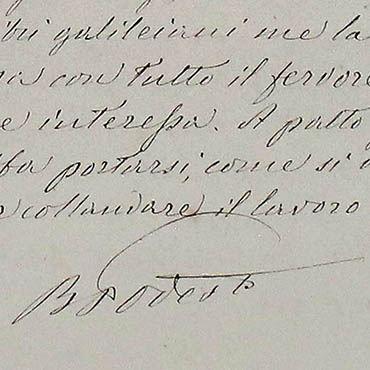 galileiani me la
con tutto il fervore
e interessa. A patto
portarsi, come si
collaudare il lavoro
B Podestà